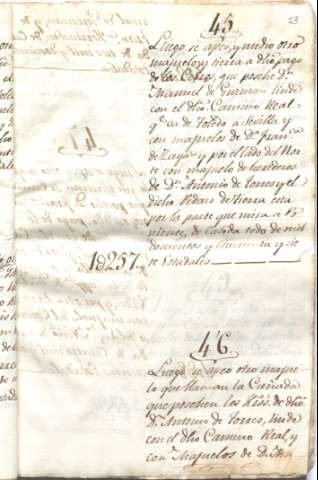 23
45
Luego se apeo, y midio otro
majuelo, y tierra a dho pago
de los Cotos, que posehe Dn
Manuel de Guzman linda
con el dho Camino Real
qe va de Toledo a Sevilla y
con majuelos de Dn Juan
de Zayas y por el lado del Nor
te con majuelo de herederos
de Dn Antonio de torres y el
dicho Pedazo de tierra esta
por la parte que mira a Po
niente, de cabida todo de mil
doscientos y cincuenta y sie
te Estadales
1257
46
Luego se apeo otro majue
lo que llaman la Cañada
que posehen los Hros. de dho
Dn Antonio de Torres, linda
con el dho Camino Real, y
con Majuelos de Dn